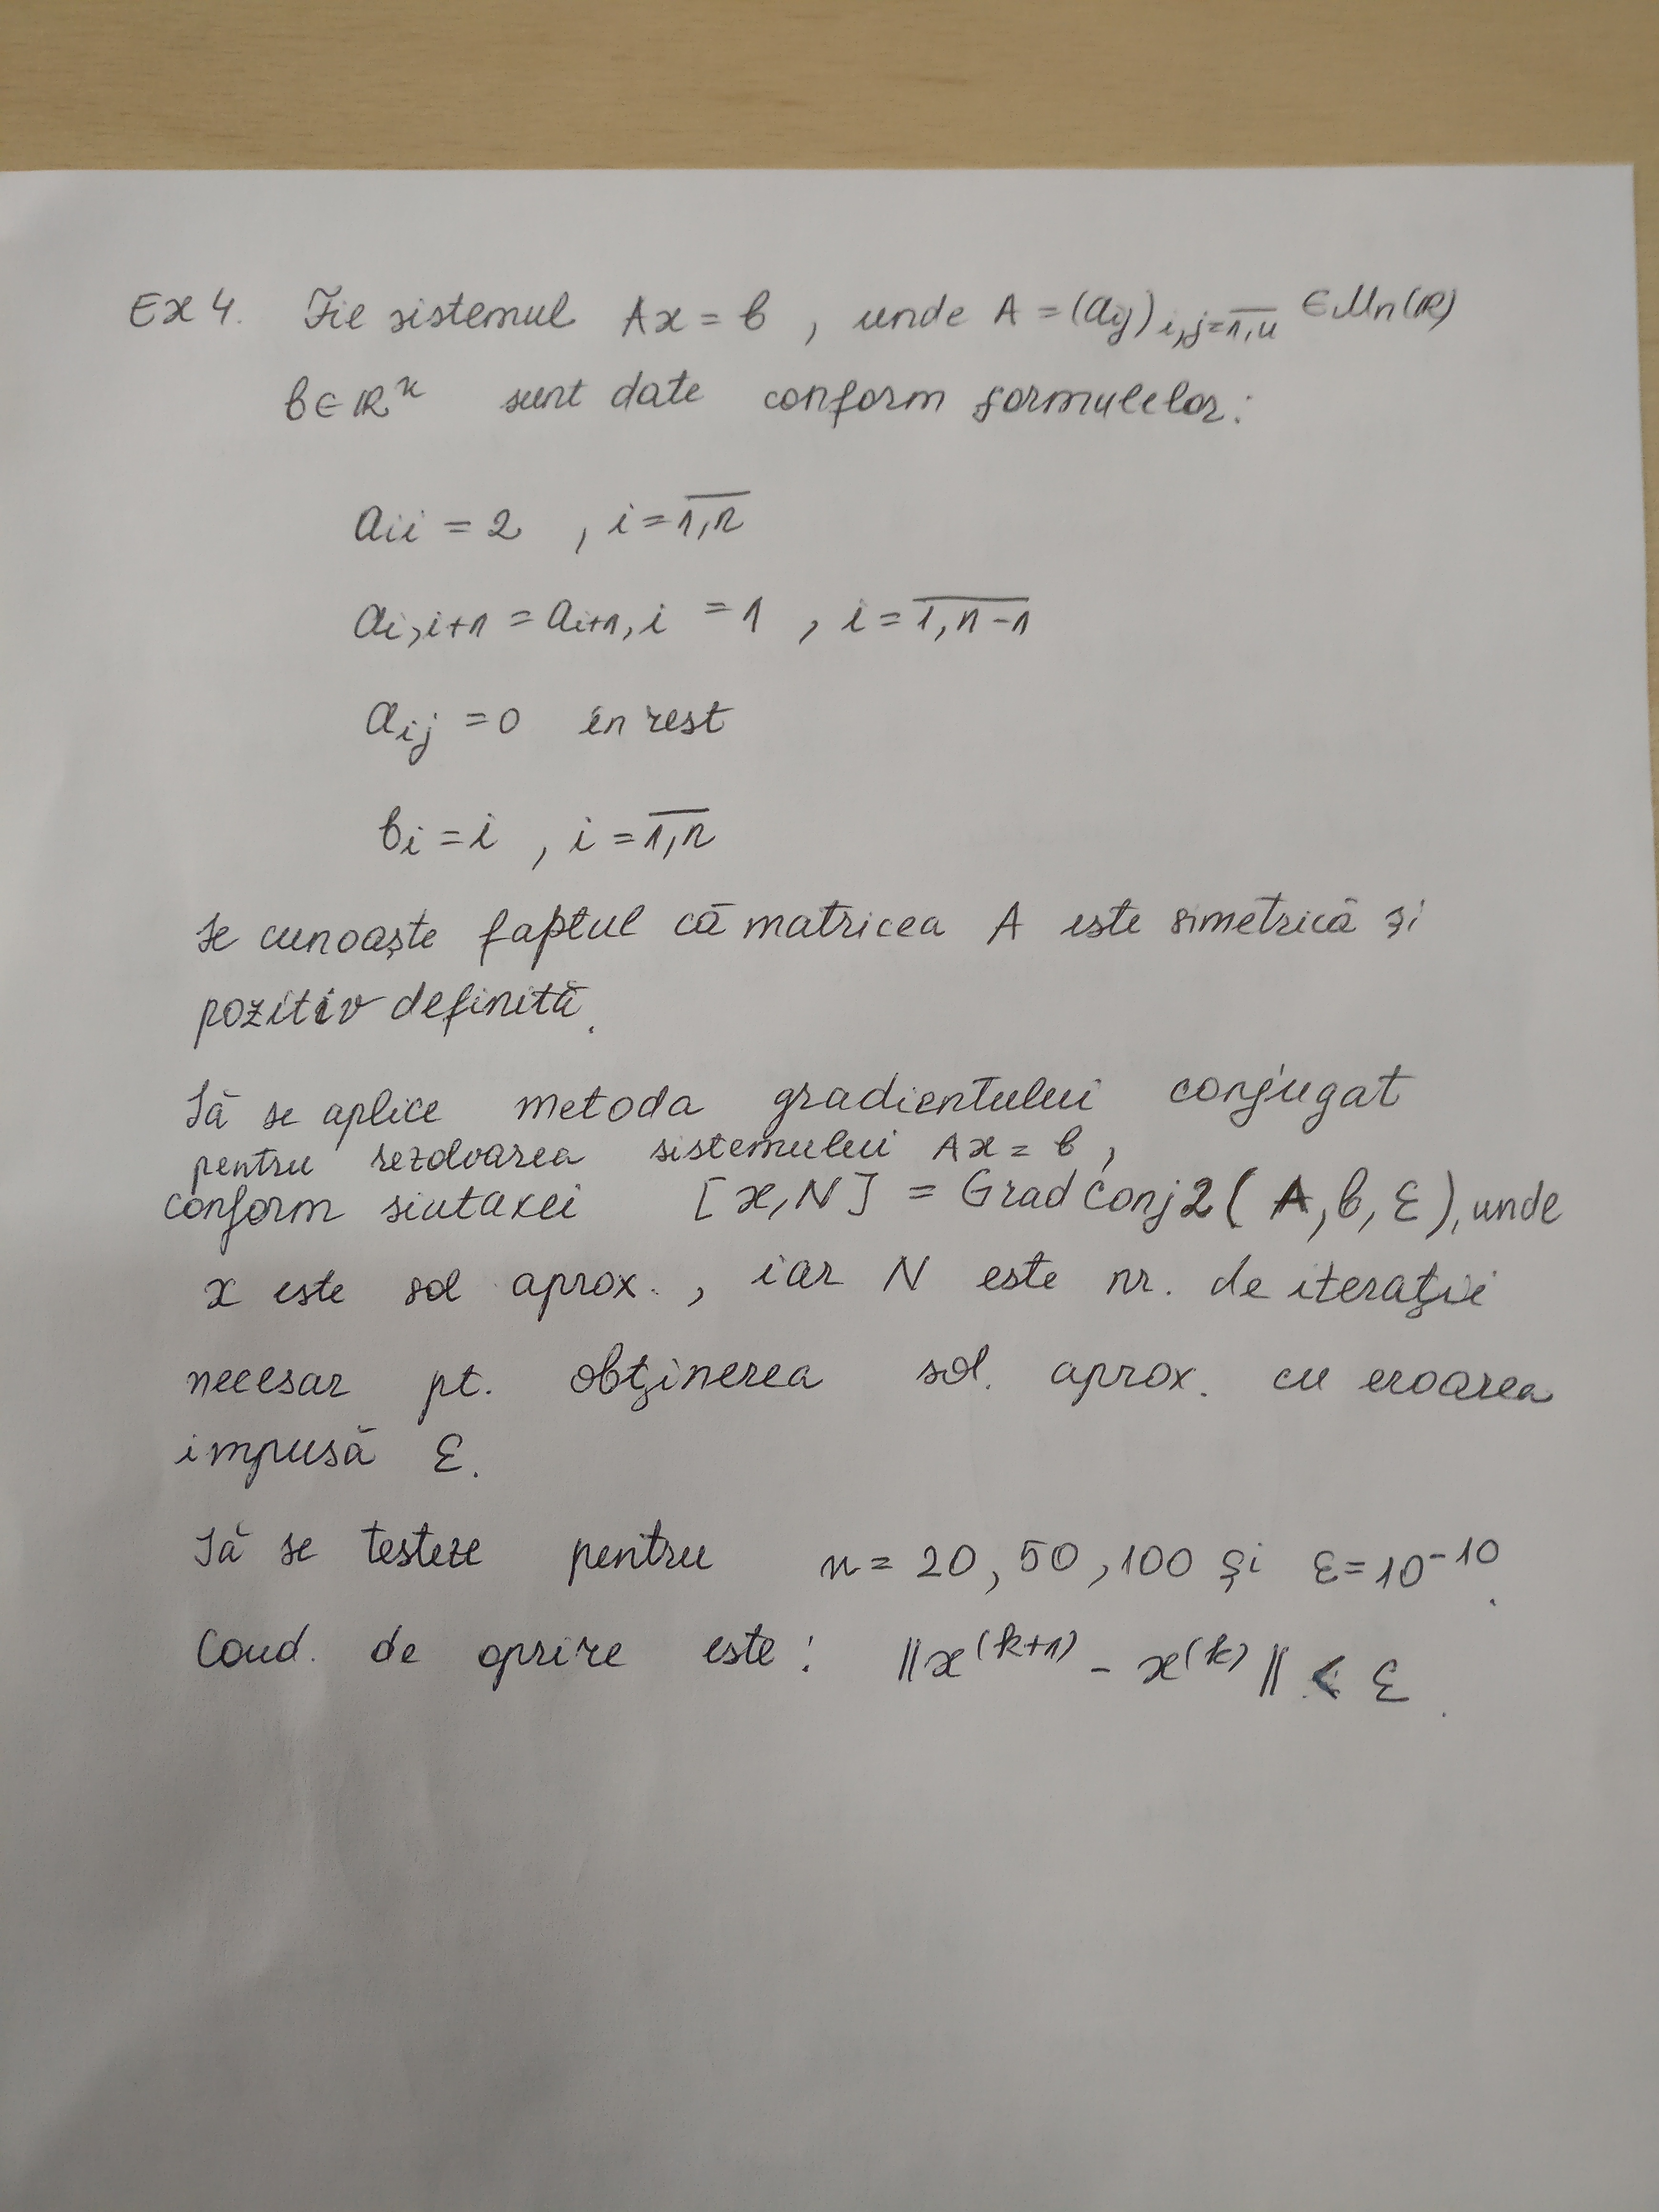 Ex 4. Fie sistemul Ax = b , unde A = (aij) i,j=1,n ∈ Mn(R)
b ∈ R^n sunt date conform formulelor:
aii = 2 , i = 1,n
ai,i+1 = ai+1,i = 1 , i = 1,n-1
aij = 0 în rest
bi = i , i = 1,n
Se cunoaște faptul că matricea A este simetrică și
pozitiv definită.
Să se aplice metoda gradientului conjugat
pentru rezolvarea sistemului Ax = b ,
conform sintaxei [x,N] = GradConj2(A,b,ε), unde
x este sol aprox. , iar N este nr. de iterații
necesar pt. obținerea sol. aprox. cu eroarea
impusă ε.
Să se testeze pentru n = 20, 50, 100 și ε = 10^-10.
Cond. de oprire este: ||x^(k+1) - x^(k)|| < ε.